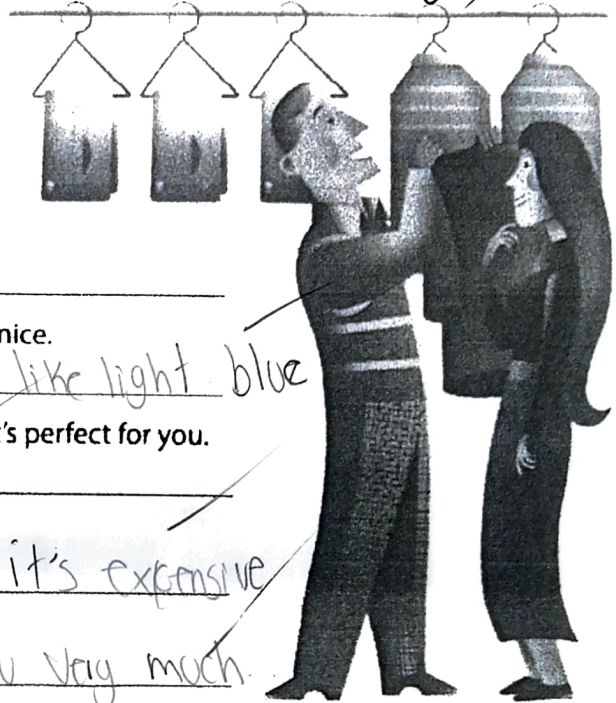 nice.
like light blue
's perfect for you.
it's expensive
very much